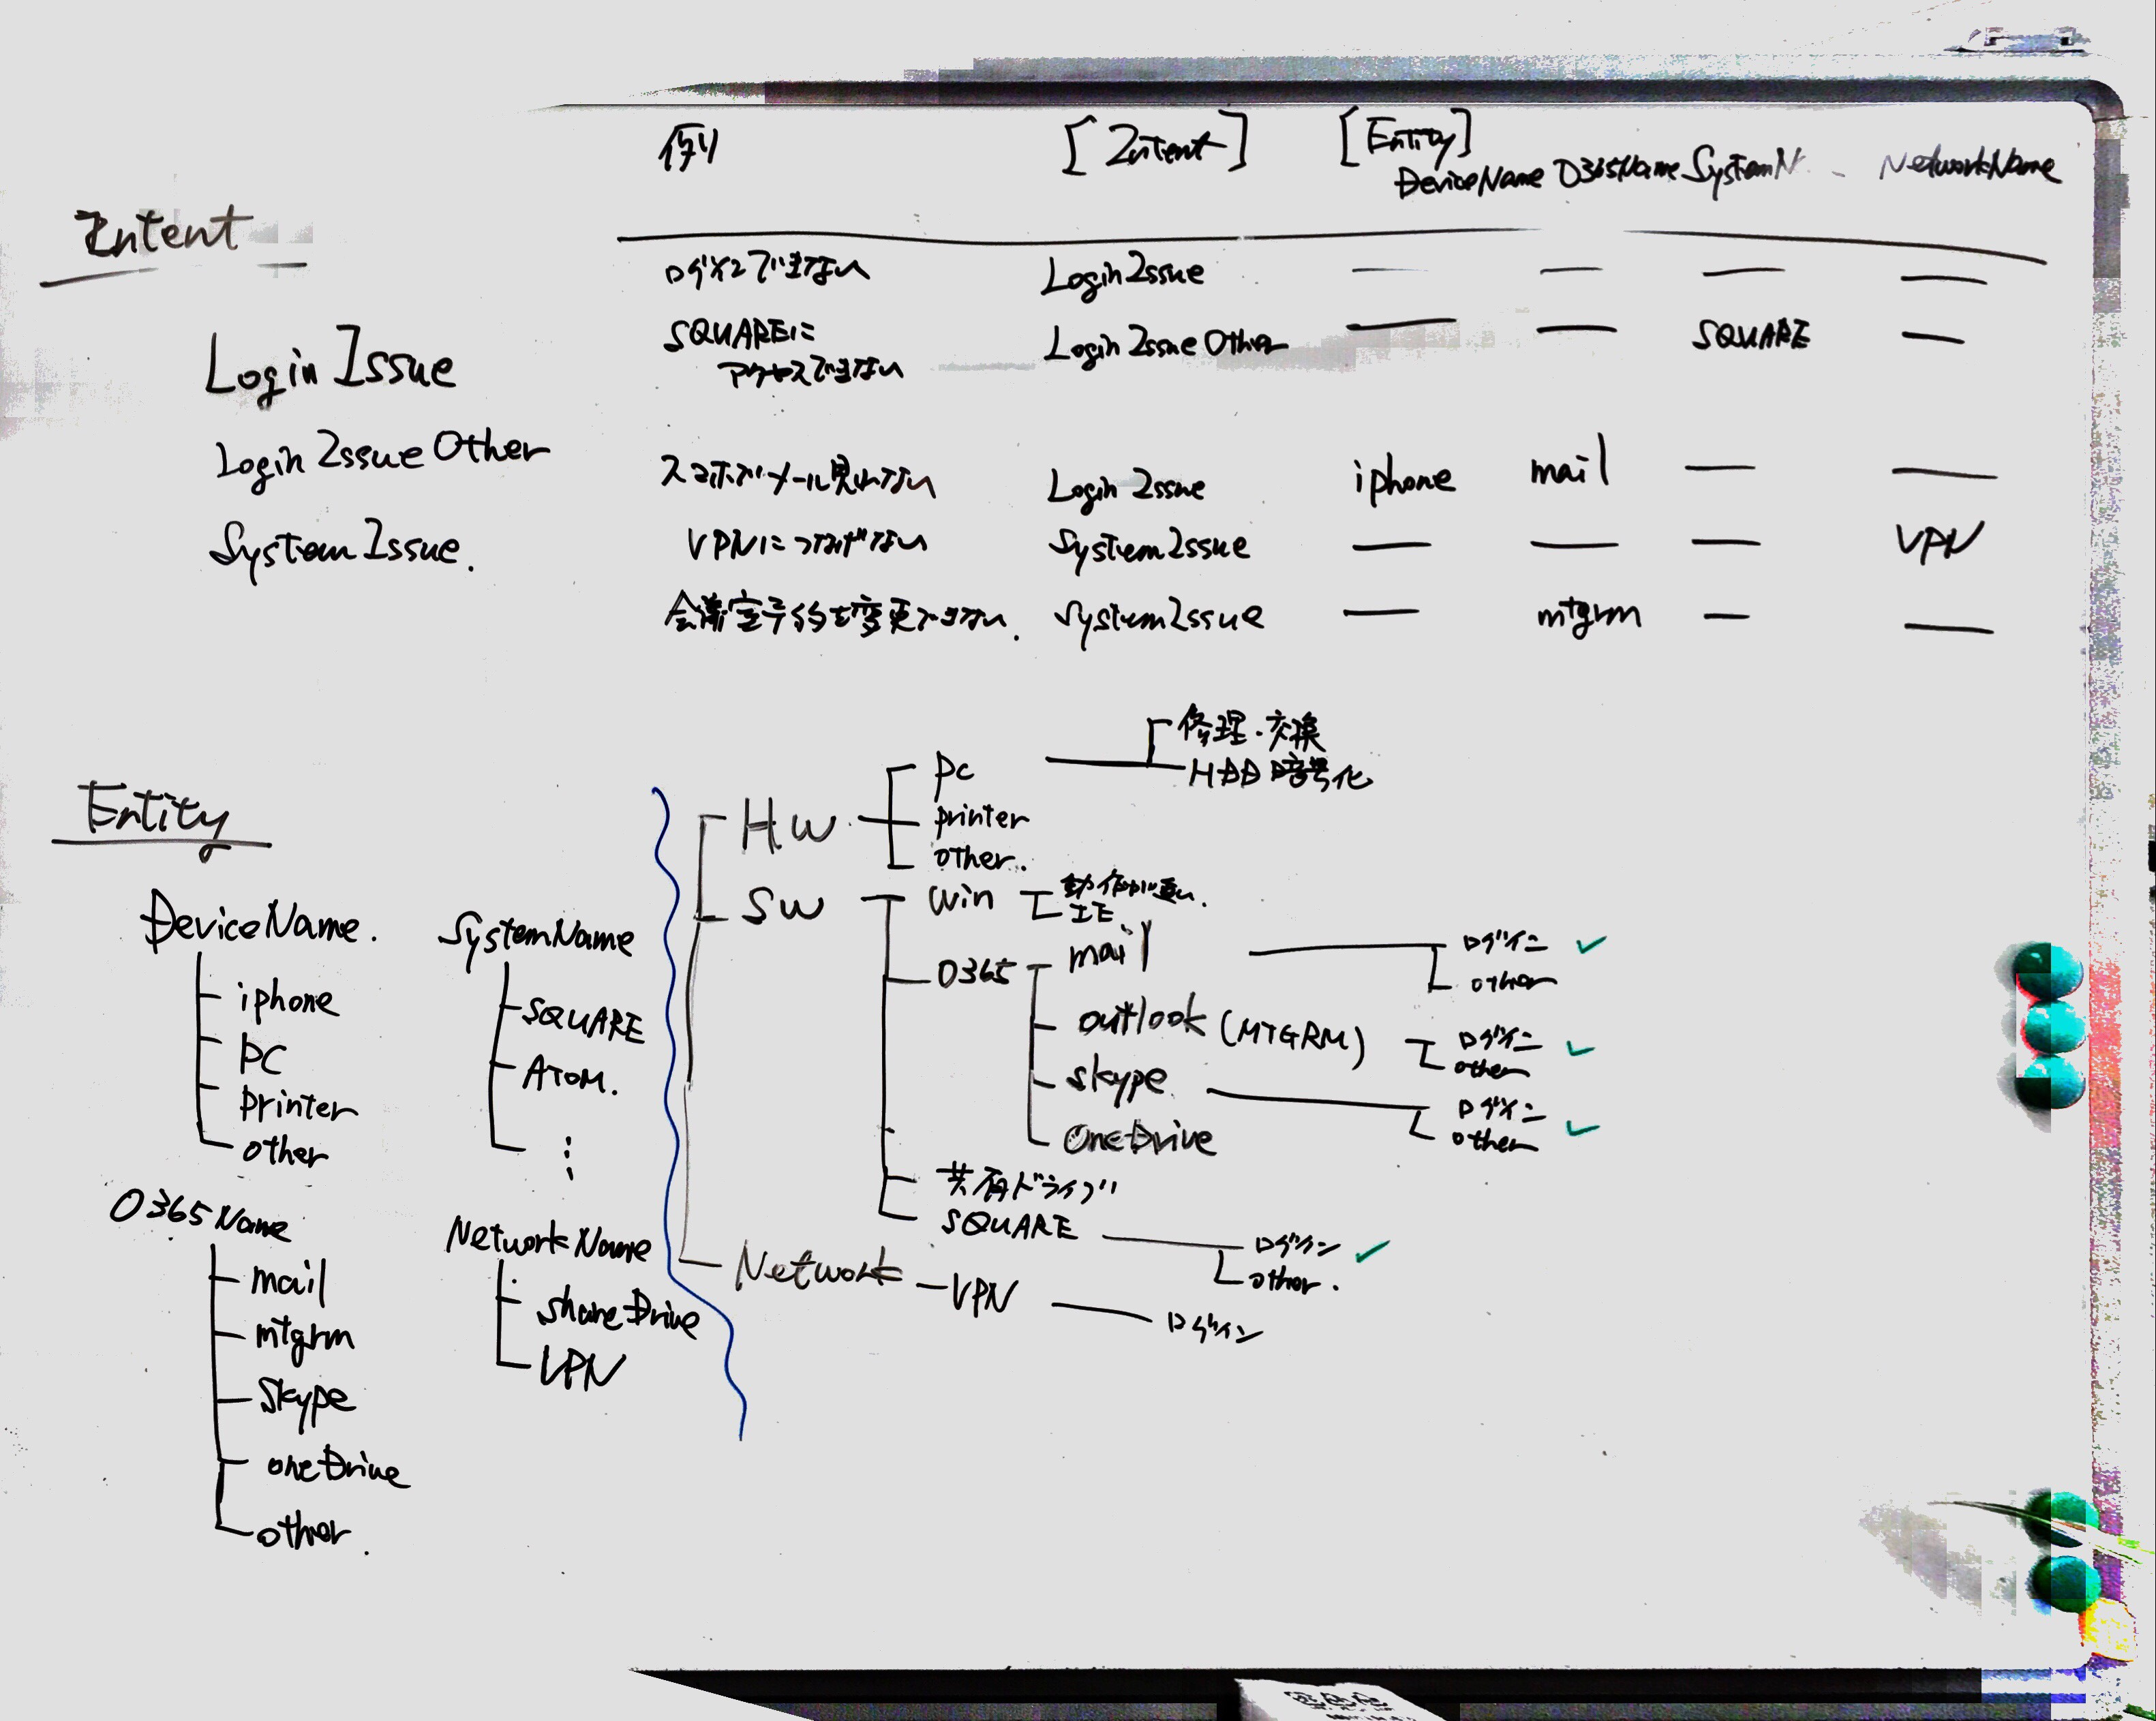 例 [Intent] [Entity]
DeviceName O365Name SystemN NetworkName
Intent
ログインできない LoginIssue — — — —
SQUAREに
アクセスできない LoginIssueOther — — SQUARE —
スマホでメール見れない LoginIssue iphone mail — —
VPNにつながらない SystemIssue — — — VPN
会議室予約を変更できない. SystemIssue — mtgrm — —
LoginIssue
LoginIssueOther
SystemIssue.
Entity
DeviceName.
iphone
PC
printer
other
O365Name
mail
mtgrm
Skype
oneDrive
other.
SystemName
SQUARE
ATOM.
⋮
NetworkName
shareDrive
VPN
HW
PC
修理・交換
HDD暗号化
printer
other.
SW
Win
動作が重い.
IE
O365
mail
ログイン ✓
other
outlook (MTGRM)
ログイン ✓
other
skype
ログイン
other ✓
oneDrive
共有ドライブ
SQUARE
ログイン ✓
other.
Network
VPN
ログイン